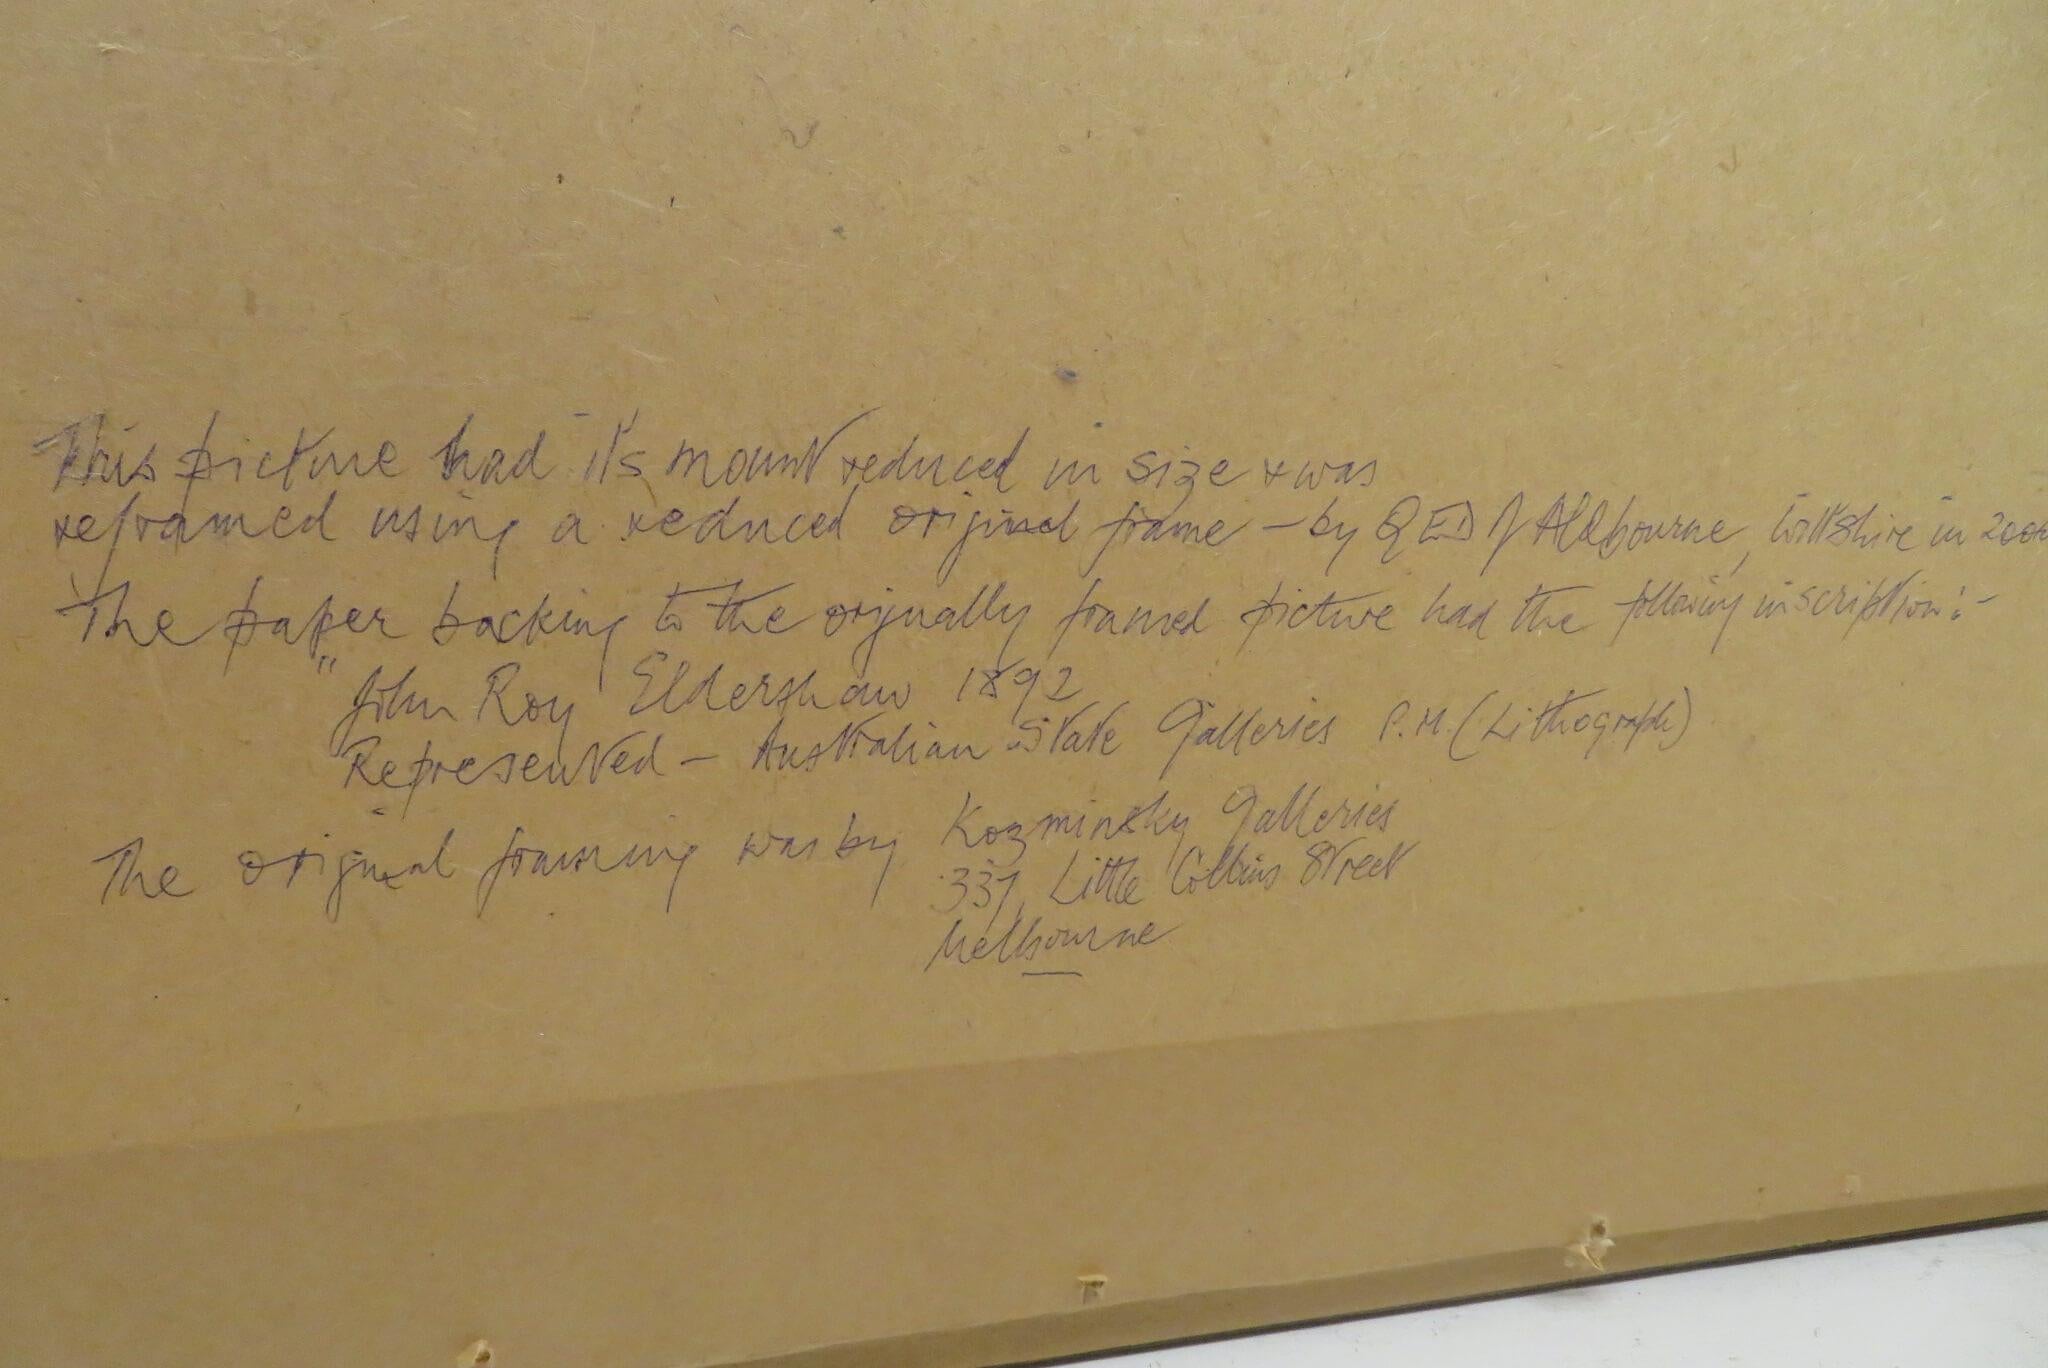 This picture had it's mount reduced in size & was
reframed using a reduced original frame - by QED of Aldbourne, Wiltshire in
The paper backing to the orignally framed picture had the following inscription:-
"John Roy Eldershaw 1892
Represented - Australian State Galleries P.M. (Lithograph)
The original framing was by Kozminsky Galleries
337, Little Collins Street
Melbourne